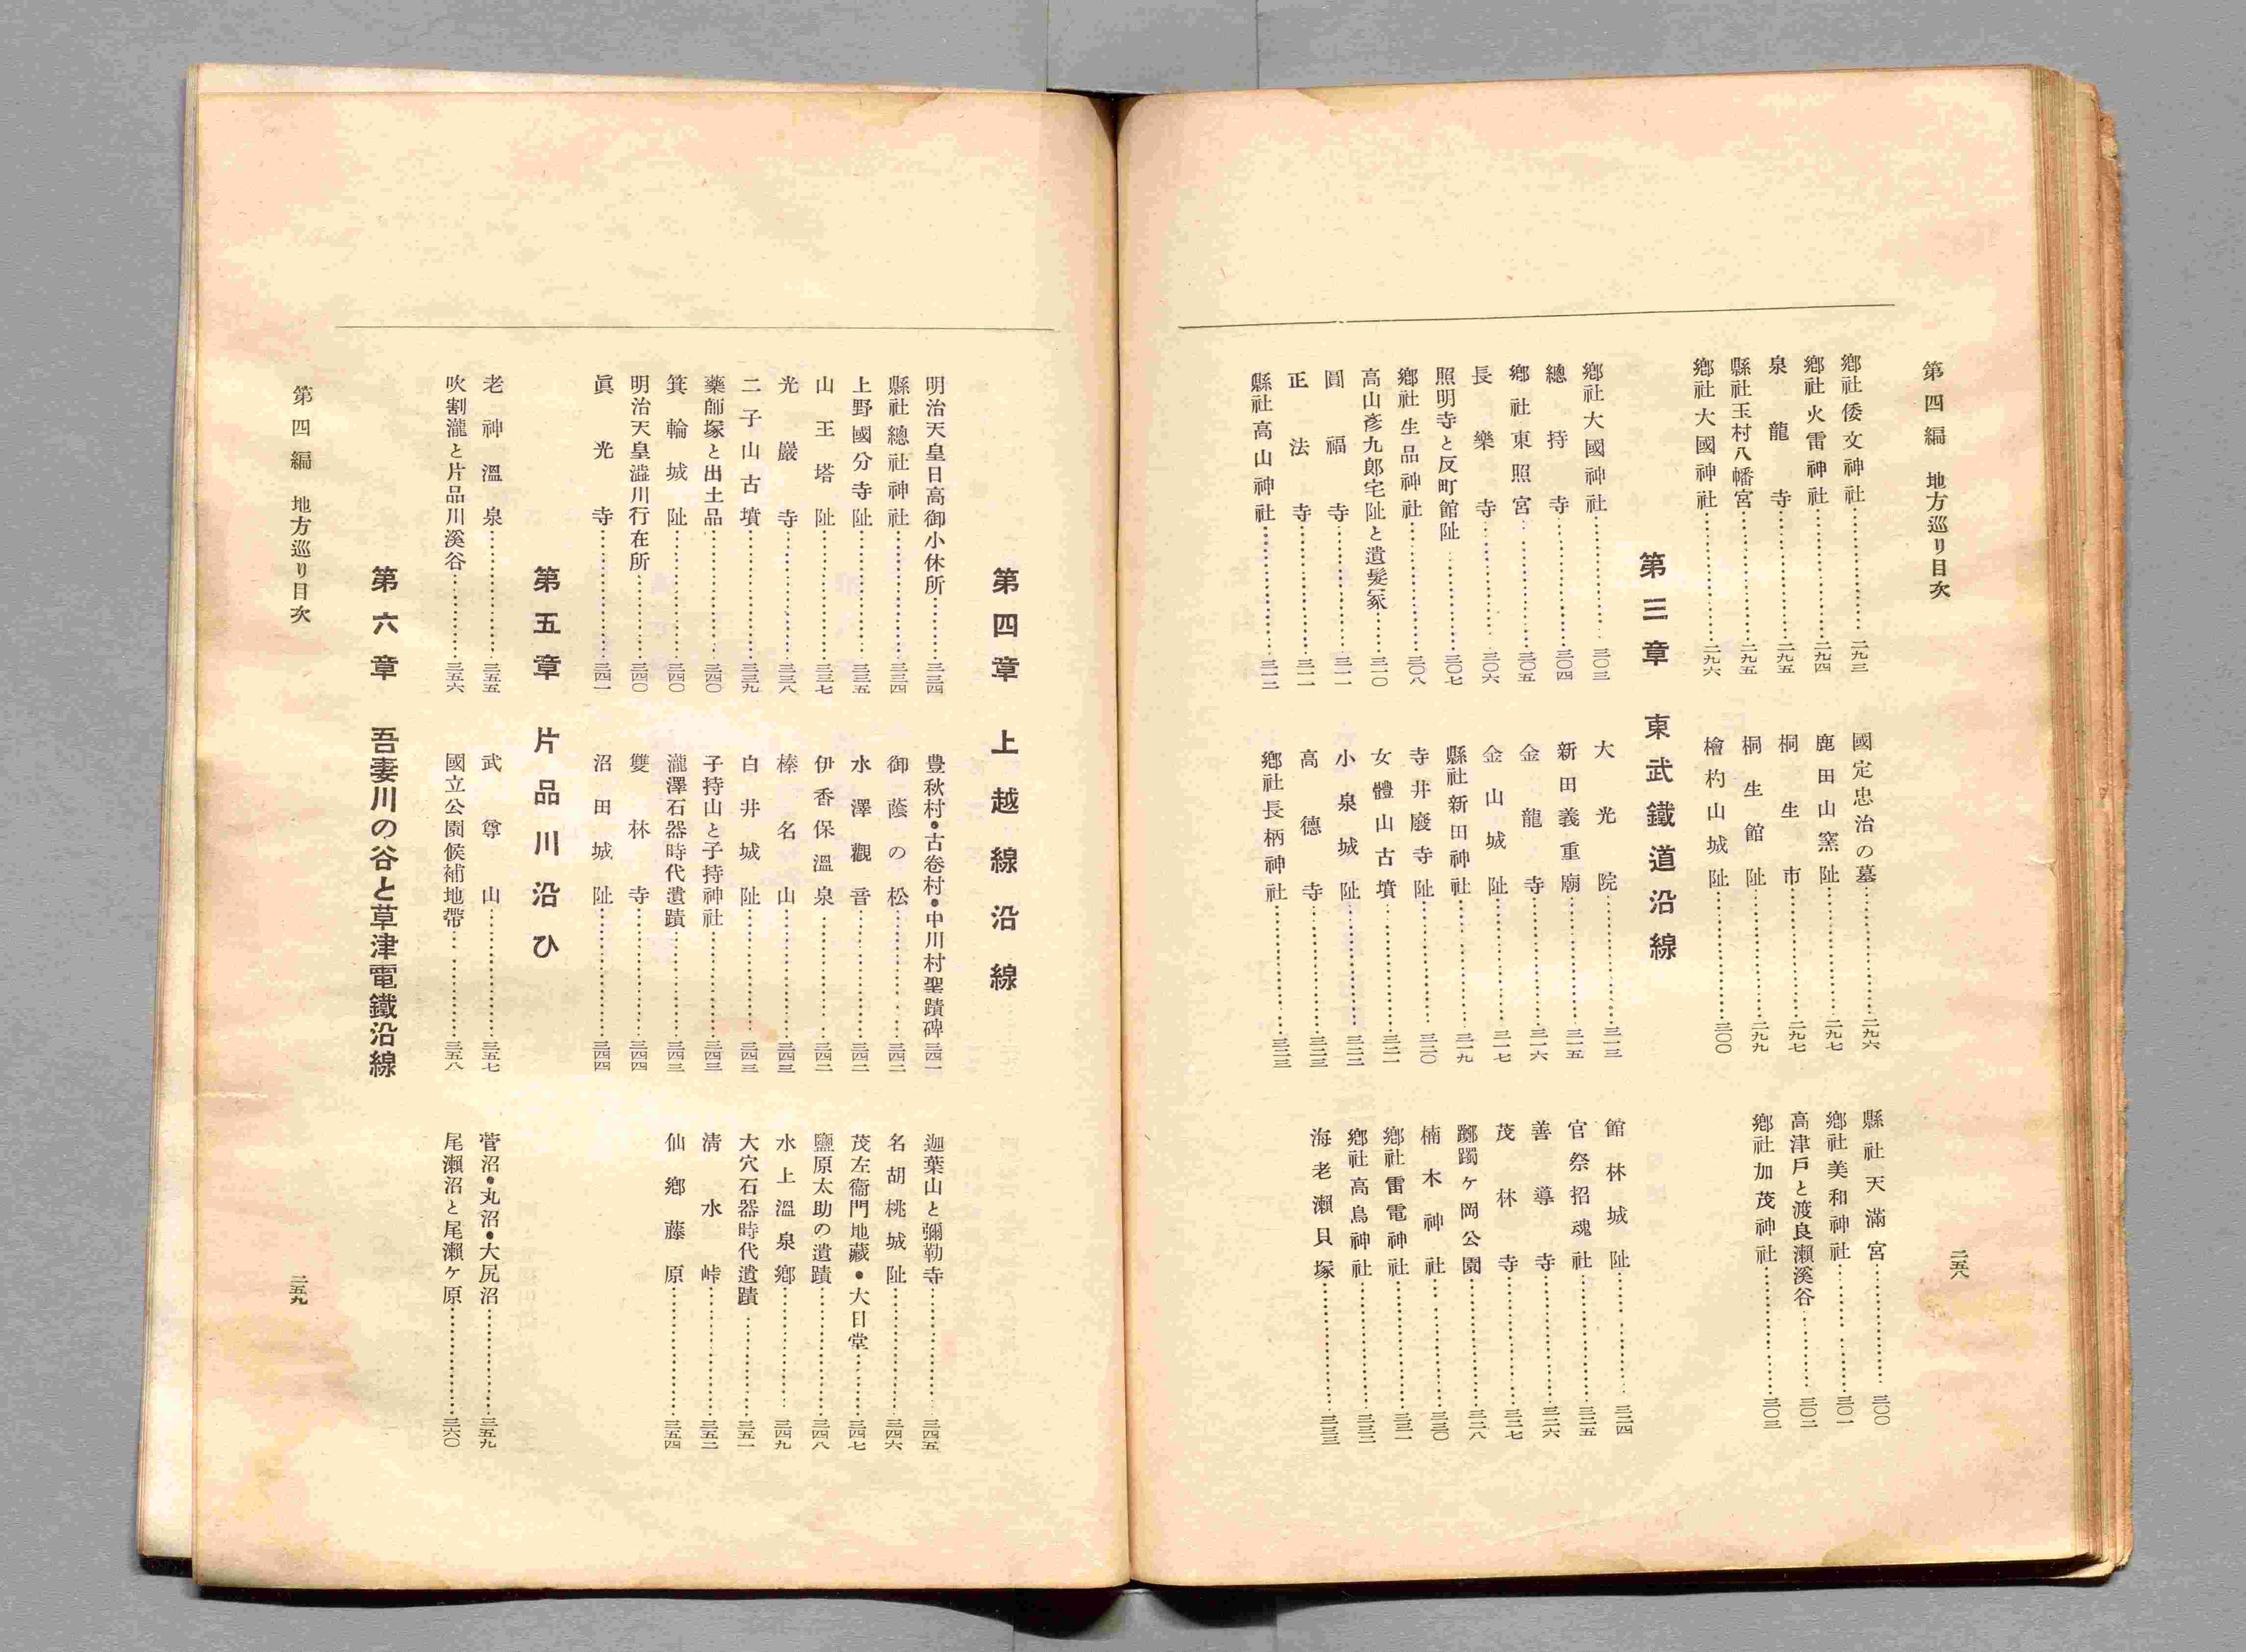 第四編　地方巡り目次
二五八
鄕社倭文神社……二九三
鄕社火雷神社……二九四
泉龍寺……二九五
縣社玉村八幡宮……二九五
鄕社大國神社……二九六
國定忠治の墓……二九六
鹿田山窯阯……二九七
桐生市……二九七
桐生館阯……二九九
檜杓山城阯……三〇〇
縣社天滿宮……三〇〇
鄕社美和神社……三〇一
高津戸と渡良瀨溪谷……三〇二
鄕社加茂神社……三〇三
第三章　東武鐵道沿線
鄕社大國神社……三〇三
總持寺……三〇四
鄕社東照宮……三〇五
長樂寺……三〇六
照明寺と反町館阯……三〇七
鄕社生品神社……三〇八
高山彥九郎宅阯と遺髮冢……三一〇
圓福寺……三一一
正法寺……三一一
縣社高山神社……三一二
大光院……三一三
新田義重廟……三一五
金龍寺……三一六
金山城阯……三一七
縣社新田神社……三一九
寺井廢寺阯……三二〇
女體山古墳……三二一
小泉城阯……三二二
高德寺……三二三
鄕社長柄神社……三二三
館林城阯……三二四
官祭招魂社……三二五
善導寺……三二六
茂林寺……三二七
躑躅ケ岡公園……三二八
楠木神社……三三〇
鄕社雷電神社……三三一
鄕社高鳥神社……三三二
海老瀨貝塚……三三三
第四章　上越線沿線
明治天皇日高御小休所……三三四
縣社總社神社……三三四
上野國分寺阯……三三五
山王塔阯……三三七
光巖寺……三三八
二子山古墳……三三九
藥師塚と出土品……三四〇
箕輪城阯……三四〇
明治天皇澁川行在所……三四〇
眞光寺……三四一
豊秋村•古卷村•中川村聖蹟碑三四一
御蔭の松……三四二
水澤觀音……三四二
伊香保溫泉……三四二
榛名山……三四三
白井城阯……三四三
子持山と子持神社……三四三
瀧澤石器時代遺蹟……三四三
雙林寺……三四四
沼田城阯……三四四
迦葉山と彌勒寺……三四五
名胡桃城阯……三四六
茂左衞門地藏•大日堂……三四七
鹽原太助の遺蹟……三四八
水上溫泉鄕……三四九
大穴石器時代遺蹟……三五一
清水峠……三五二
仙鄕藤原……三五四
第五章　片品川沿ひ
老神溫泉……三五五
吹割瀧と片品川溪谷……三五六
武尊山……三五七
國立公園候補地帶……三五八
菅沼•丸沼•大尻沼……三五九
尾瀨沼と尾瀨ケ原……三六〇
第六章　吾妻川の谷と草津電鐵沿線
第四編　地方巡り目次
二五九